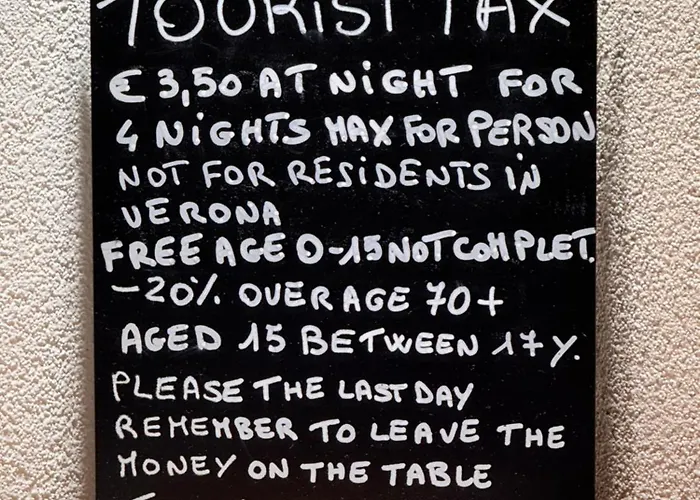 TOURIST TAX
€ 3,50 AT NIGHT FOR
4 NIGHTS MAX FOR PERSON
NOT FOR RESIDENTS IN
VERONA
FREE AGE 0-15 NOT COMPLET.
-20% OVER AGE 70+
AGED 15 BETWEEN 17 Y.
PLEASE THE LAST DAY
REMEMBER TO LEAVE THE
MONEY ON THE TABLE